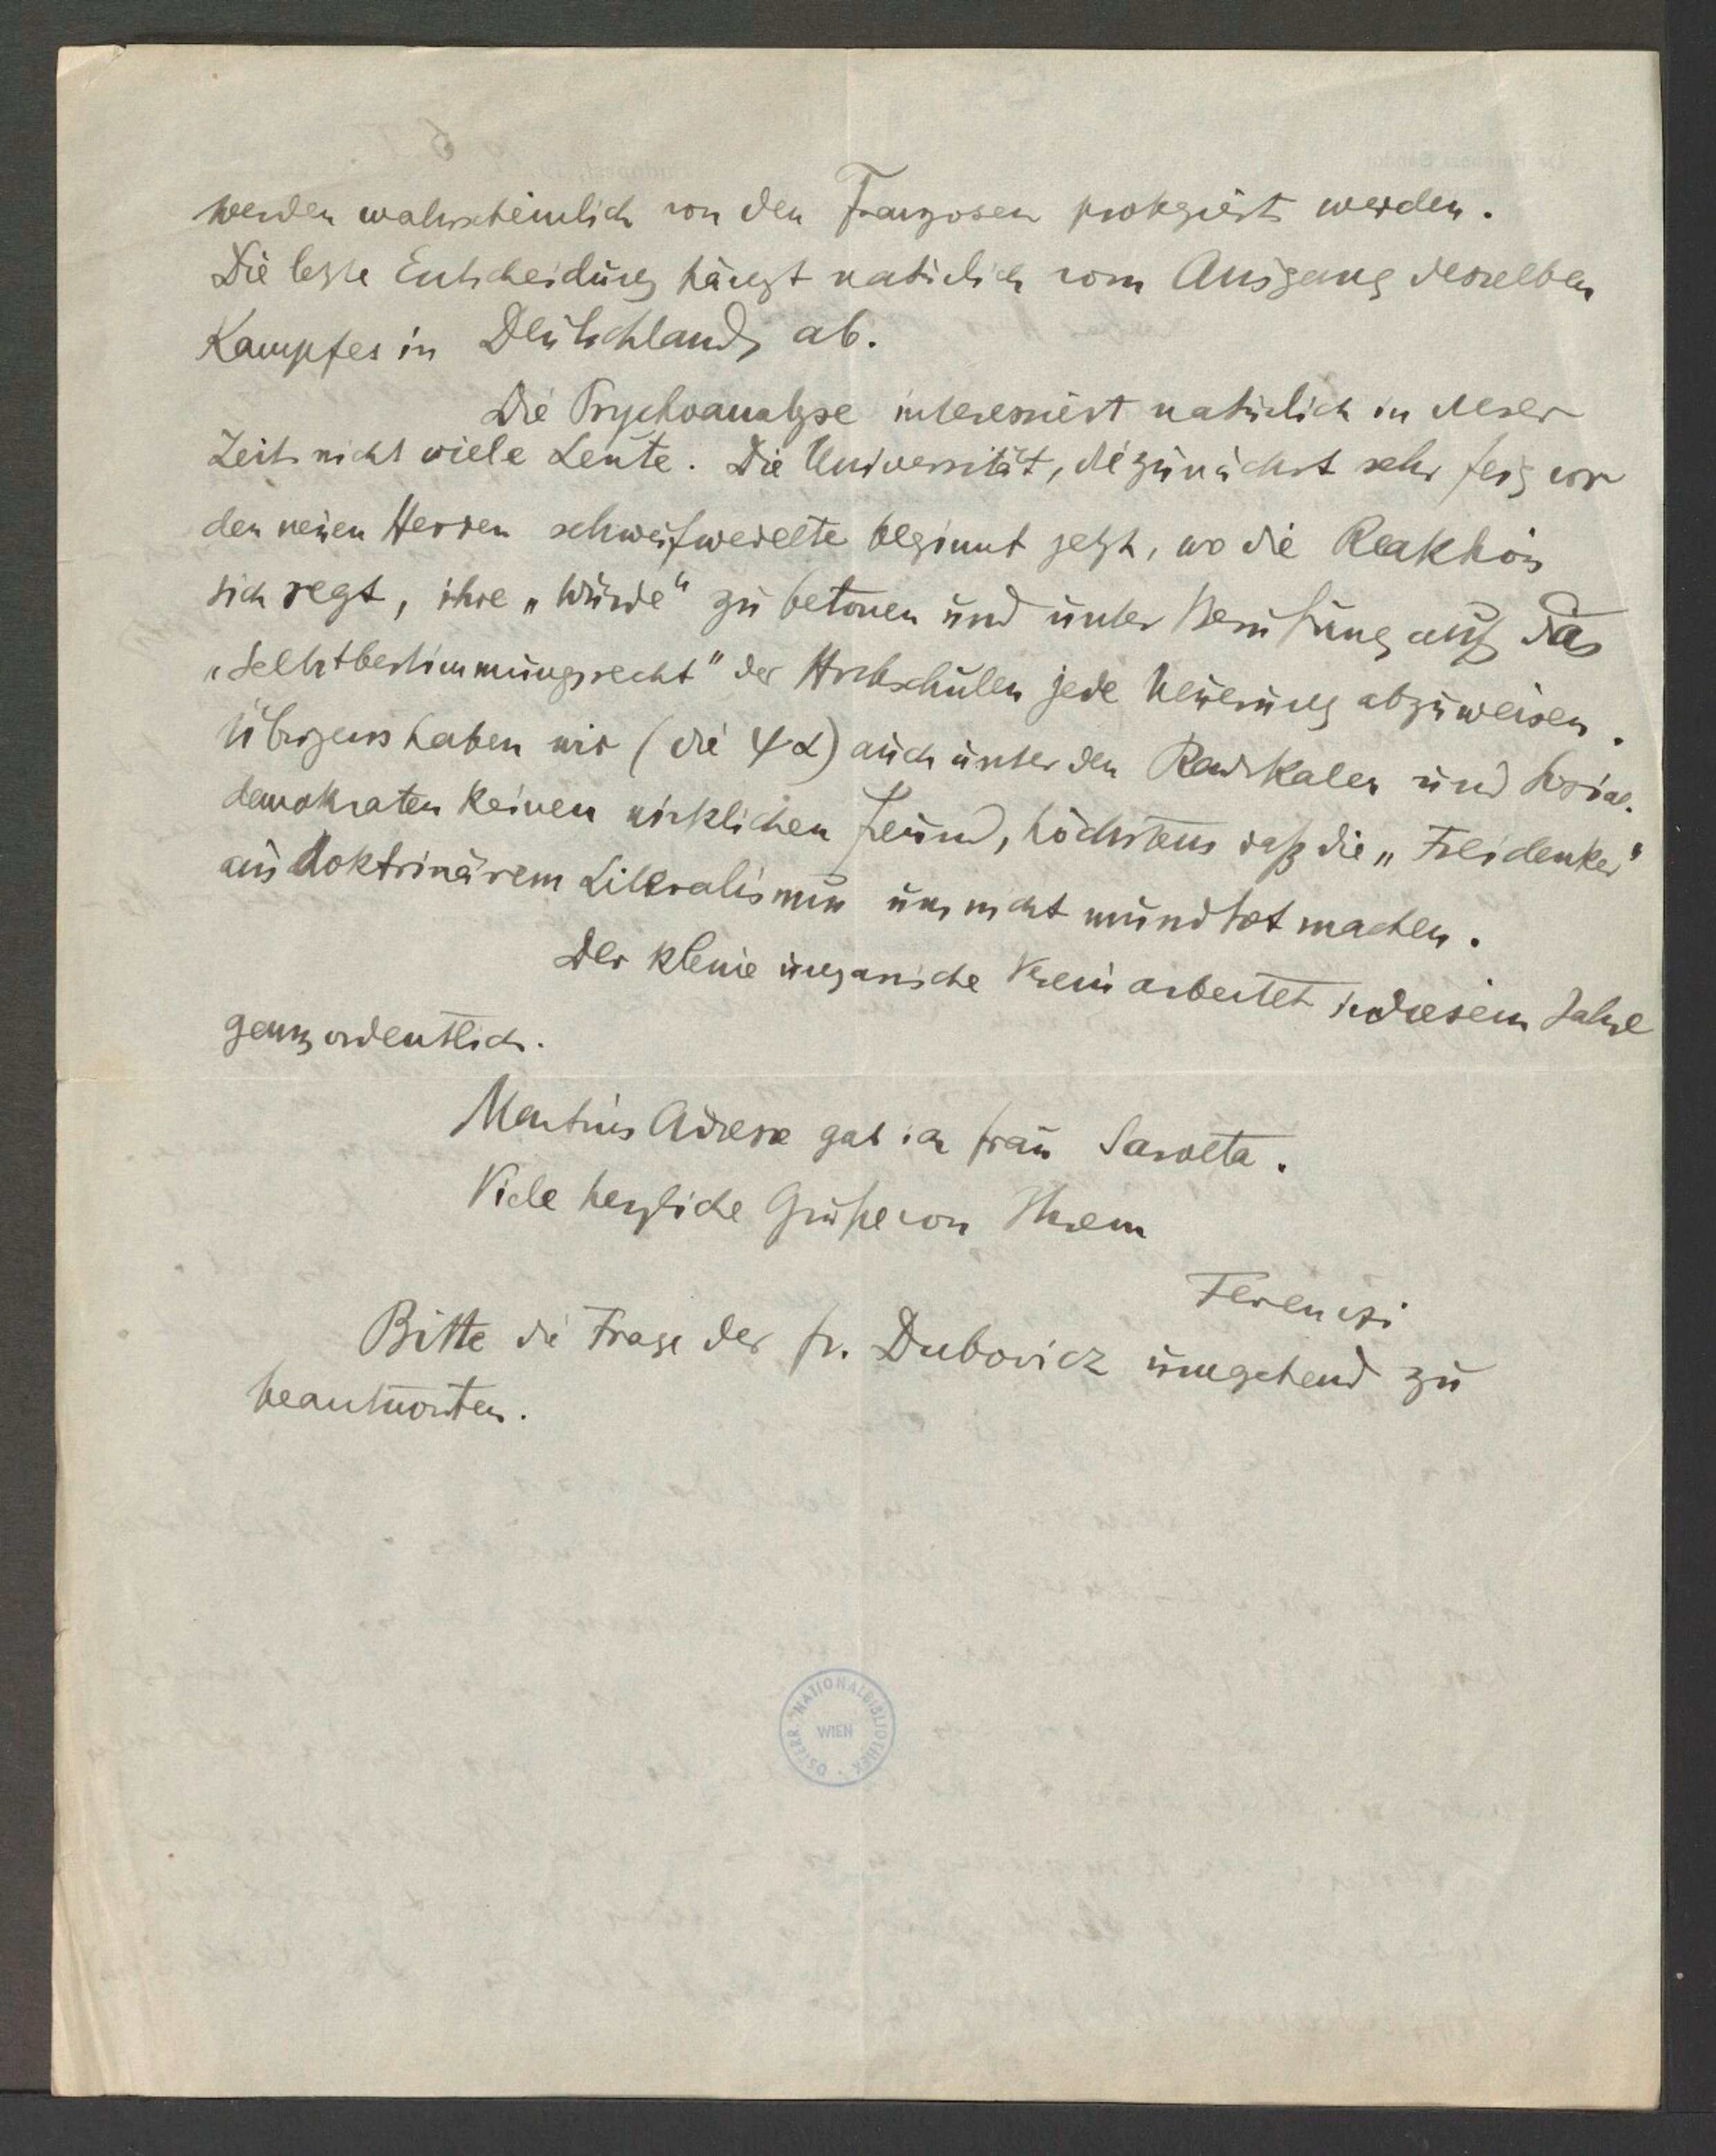 werden wahrscheinlich von den Franzosen protegiert werden.
Die letzte Entscheidung hängt natürlich vom Ausgang desselben
Kampfes in Deutschland ab.
Die Psychoanalyse interessiert natürlich in dieser
Zeit nicht viele Leute. Die Universität, die zunächst sehr feig vor
den neuen Herren schweifwedelte beginnt jetzt, wo die Reaktion
sich regt, ihre „Würde" zu betonen und unter Berufung auf das
„Selbstbestimmungsrecht" der Hochschulen jede Neuerung abzuweisen.
Übrigens haben wir (die ψα) auch unter den Radikalen und Sozial-
demokraten keinen wirklichen Freund, höchstens daß die „Freidenker"
aus doktrinärem Liberalismus uns nicht mundtot machen.
Der kleine ungarische Verein arbeitet in diesem Jahre
ganz ordentlich.
Martins Adresse gab ich Frau Sarolta.
Viele herzliche Grüße von Ihrem
Ferenczi
Bitte die Frage der Fr. Dubovicz umgehend zu
beantworten.
ÖSTERR. NATIONALBIBLIOTHEK
WIEN